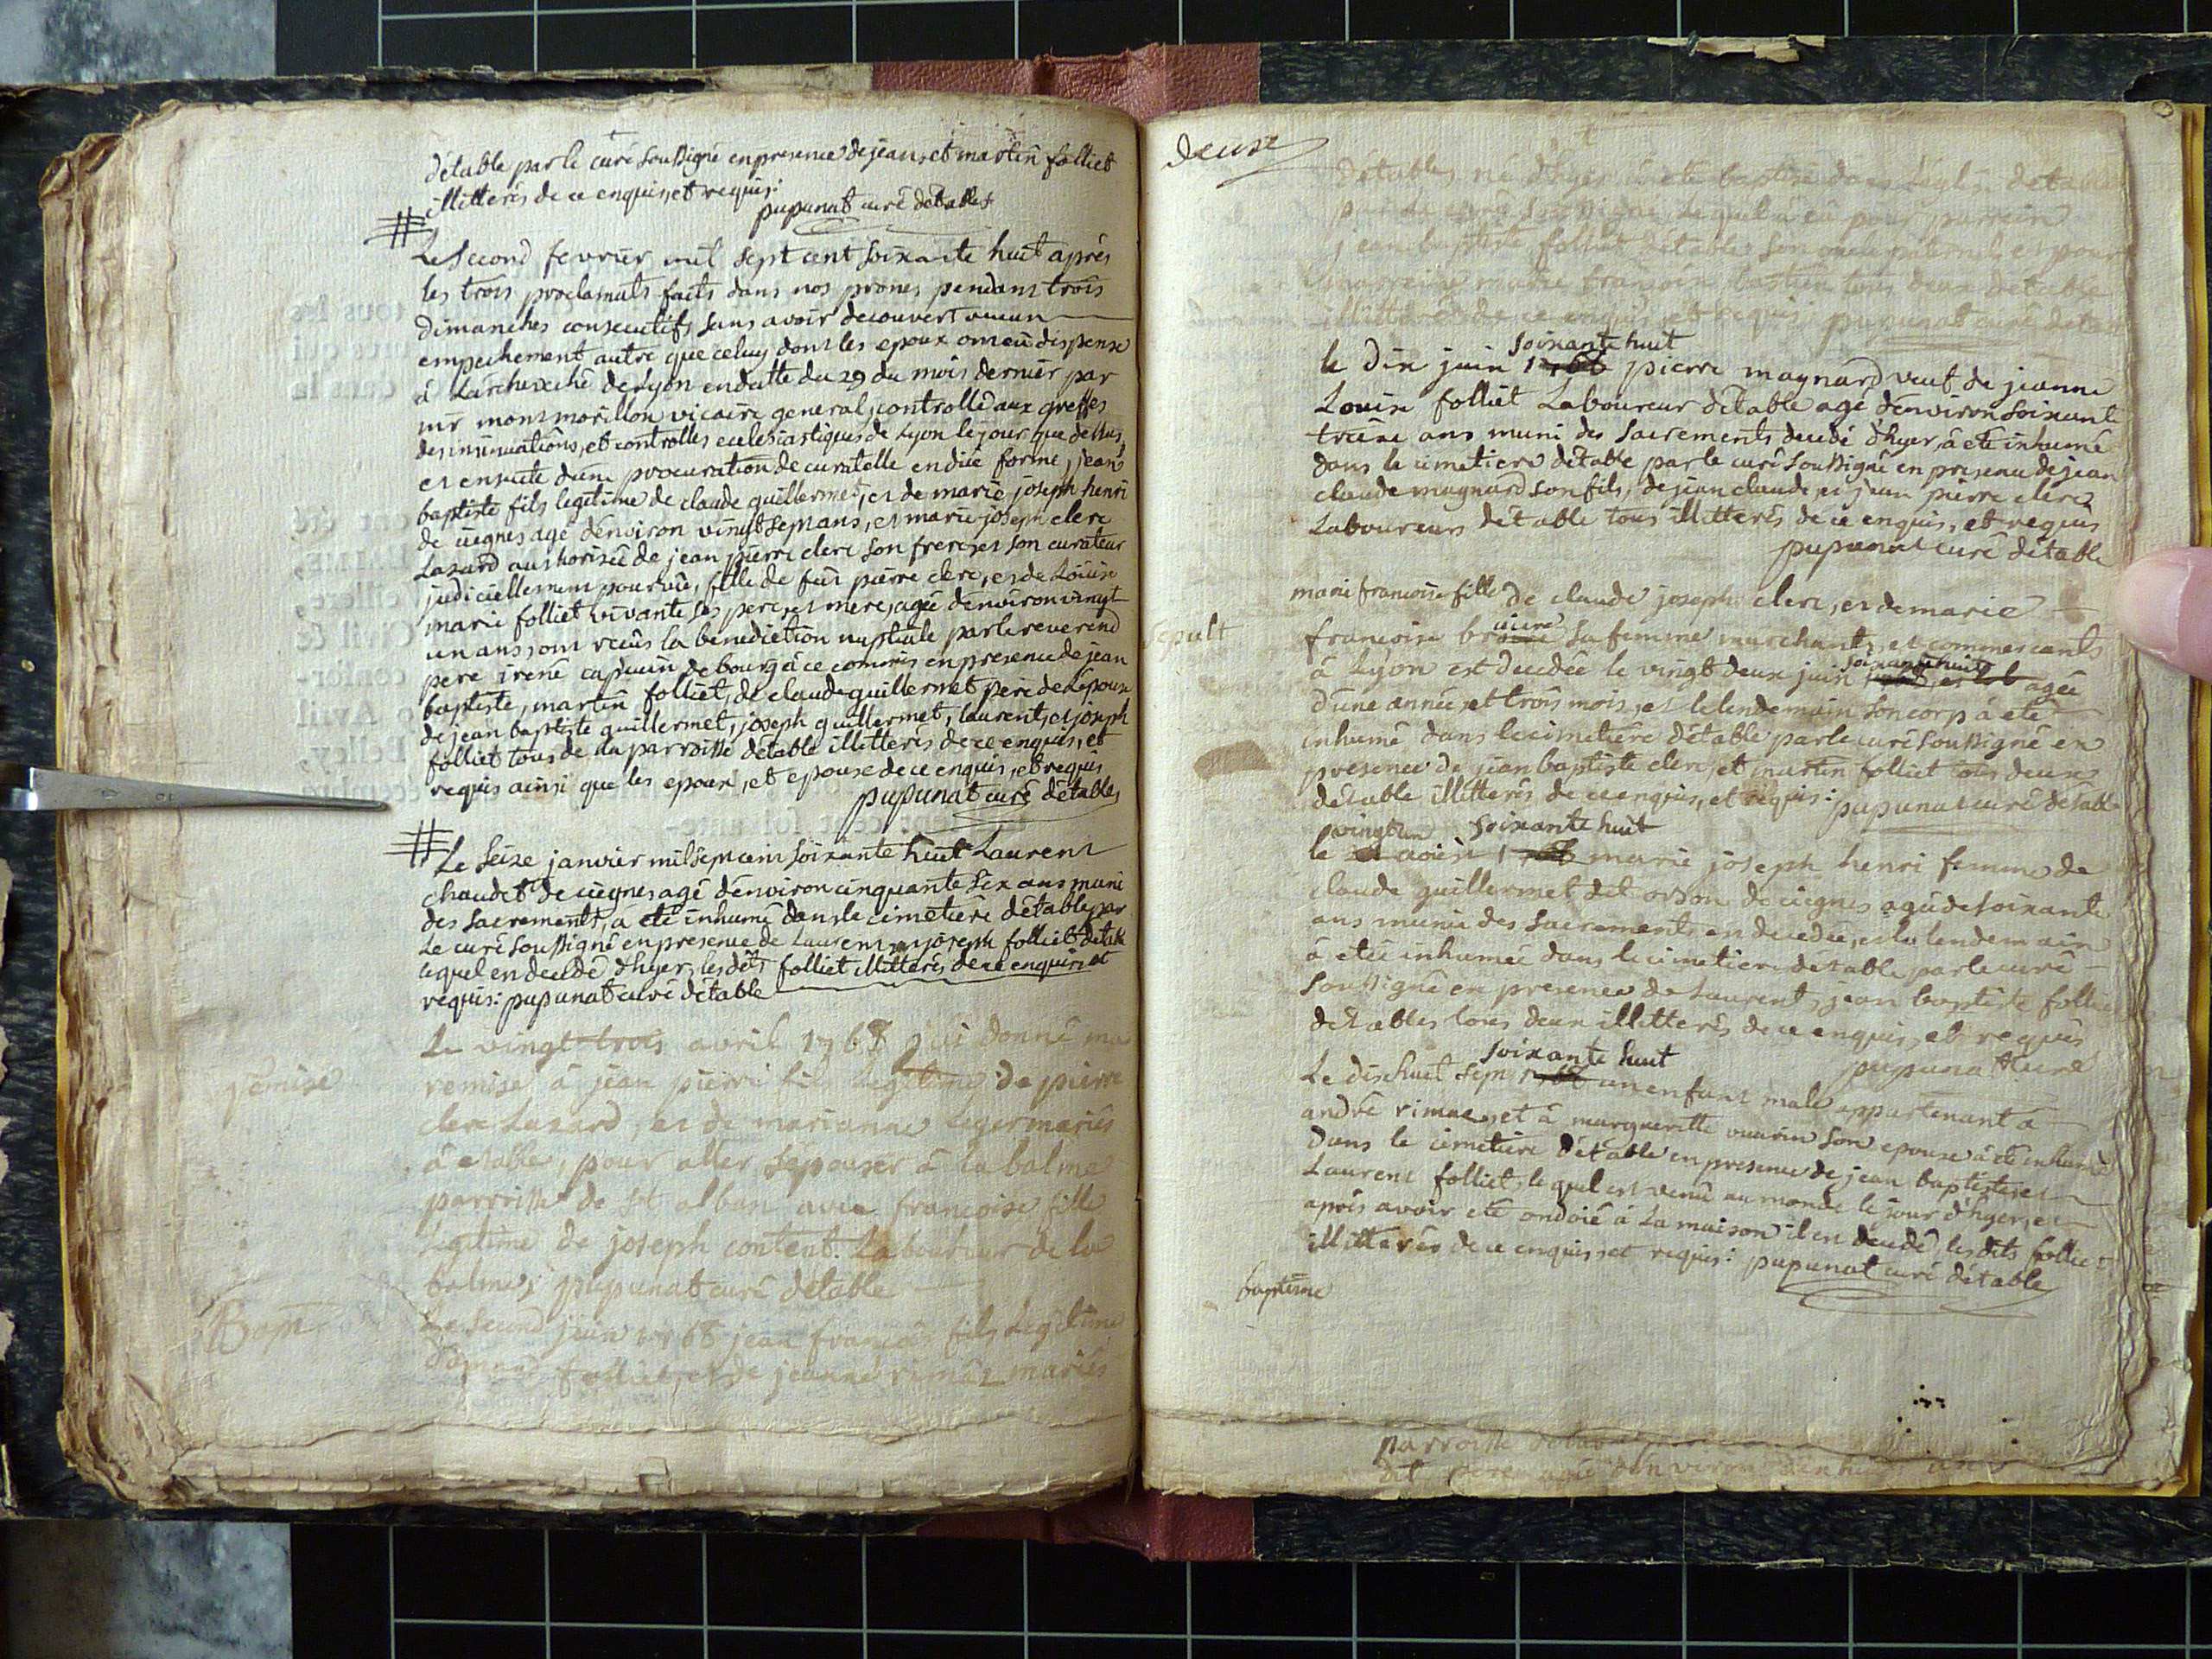 détable par le curé soussigné en presence de jean, et martin folliet
illitterés de ce enquis, et requis:
pupunat curé détables
#
Le second fevrier mil sept cent soixante huit après
les trois proclamats faits dans nos prones pendant trois
dimanches consecutifs sans avoir decouvert aucun
empechement autre que celuy dont les epoux ont eü dispense
à L'archeveché de Lyon en datte du 29 du mois dernier par
mr montmorillon vicaire general, controllé aux greffes
des insinuations, et controlles ecclesiastiques de Lyon le jour que dessus,
et ensuite d'une procuration de curatelle en düe forme, jean
baptiste fils legitime de claude guillermet, et de marie joseph henri
de ciegnes agé d'environ vingt sept ans, et marie joseph clerc
Lazard authorisée de jean pierre clerc son frere, et son curateur
judiciellement pourvüe, fille de fut pierre clerc, et de Loüise
marie folliet vivante ses pere, et mere, agée d'environ vingt
un ans, ont recüs la benediction nuptiale par le reverend
pere irené capucin de bourg à ce commis en presence de jean
baptiste, martin folliet, de claude guillermet pere de l'epoux
de jean baptiste guillermet, joseph guillermet, laurent, et joseph
folliet tous de la parroisse détable illitterés de ce enquis, et
requis ainsi que les epoux, et epouse de ce enquis, et requis
pupunat curé détables
#
Le seize janvier mil sept cent soixante huit Laurent
chaudet de ciegnes agé d'environ cinquante six ans muni
des sacrements, a eté inhumé dans le cimetiére détable par
Le curé soussigné en presence de Laurent, et joseph folliet détable
lequel en decedé d'hyer, les dits folliet illitterés de ce enquis, et
requis: pupunat curé détable
Le vingt trois avril 1768 j'ai donné ma
remise
remise à jean pierre fils legitime de pierre
clerc Lazard, et de marianne leger mariés
à etable, pour aller s'epouser à la balme
parroisse de st alban avec francoise fille
Legitime de joseph content Laboureur de la
balme; pupunat curé détable
Bapt
Le second juin 1768 jean francois fils Legitime
folliet, et de jeanne rimaz mariés
deuse
Détables né d'hyer à eté baptisé dans L'église détables
par Le curé soussigné Lequel à eü pour parrain
jean baptiste folliet détables son oncle paternel, et pour
marreine marie francoise tous deux détable
illitterés de ce enquis, et requis: pupunat curé détable
soixante huit
le dix juin 1768 pierre maynard veuf de jeanne
Louise folliet Laboureur détable agé d'environ soixante
treize ans muni des sacrements decedé d'hyer, à eté inhumé
dans le cimetiere détable par le curé soussigné en presence de jean
claude maynard son fils, de jean claude, et jean pierre clerc
Laboureurs détable tous illitterés de ce enquis, et requis
pupunat curé détable
marie francoise fille de claude joseph clerc, et de marie
sepult
francoise sa femme marchants, et commercants
à Lyon est decedée le vingt deux juin soixante huit agée
d'une année, et trois mois, et le lendemain son corp à eté
inhumé dans le cimetiére détable par le curé soussigné en
presence de jean baptiste clerc, et martin folliet tous deux
détable illitterés de ce enquis, et requis: pupunat curé détable
vingt un soixante huit
le aoüst 1768 marie joseph henri femme de
claude guillermet dit orson de ciegnes agée de soixante
ans munie des sacrements en decedée, et le lendemain
à etée inhumée dans le cimetiere détable par le curé
soussigné en presence de Laurent, jean baptiste folliet
détables tous deux illitterés de ce enquis, et requis
pupunat curé
soixante huit
Le dixhuit sept 1768 un enfant male appartenant à
andré rimaz, et à margueritte vuarin son epouse à eté inhumé
dans le cimetiere détable en presence de jean baptiste, et
Laurent folliet, lequel est venu au monde le jour d'hyer, et
après avoir eté ondoié à La maison il en decedé, les dits folliet
illitterés de ce enquis, et requis: pupunat curé détable
baptême
parroisse
dit pere agé d'environ